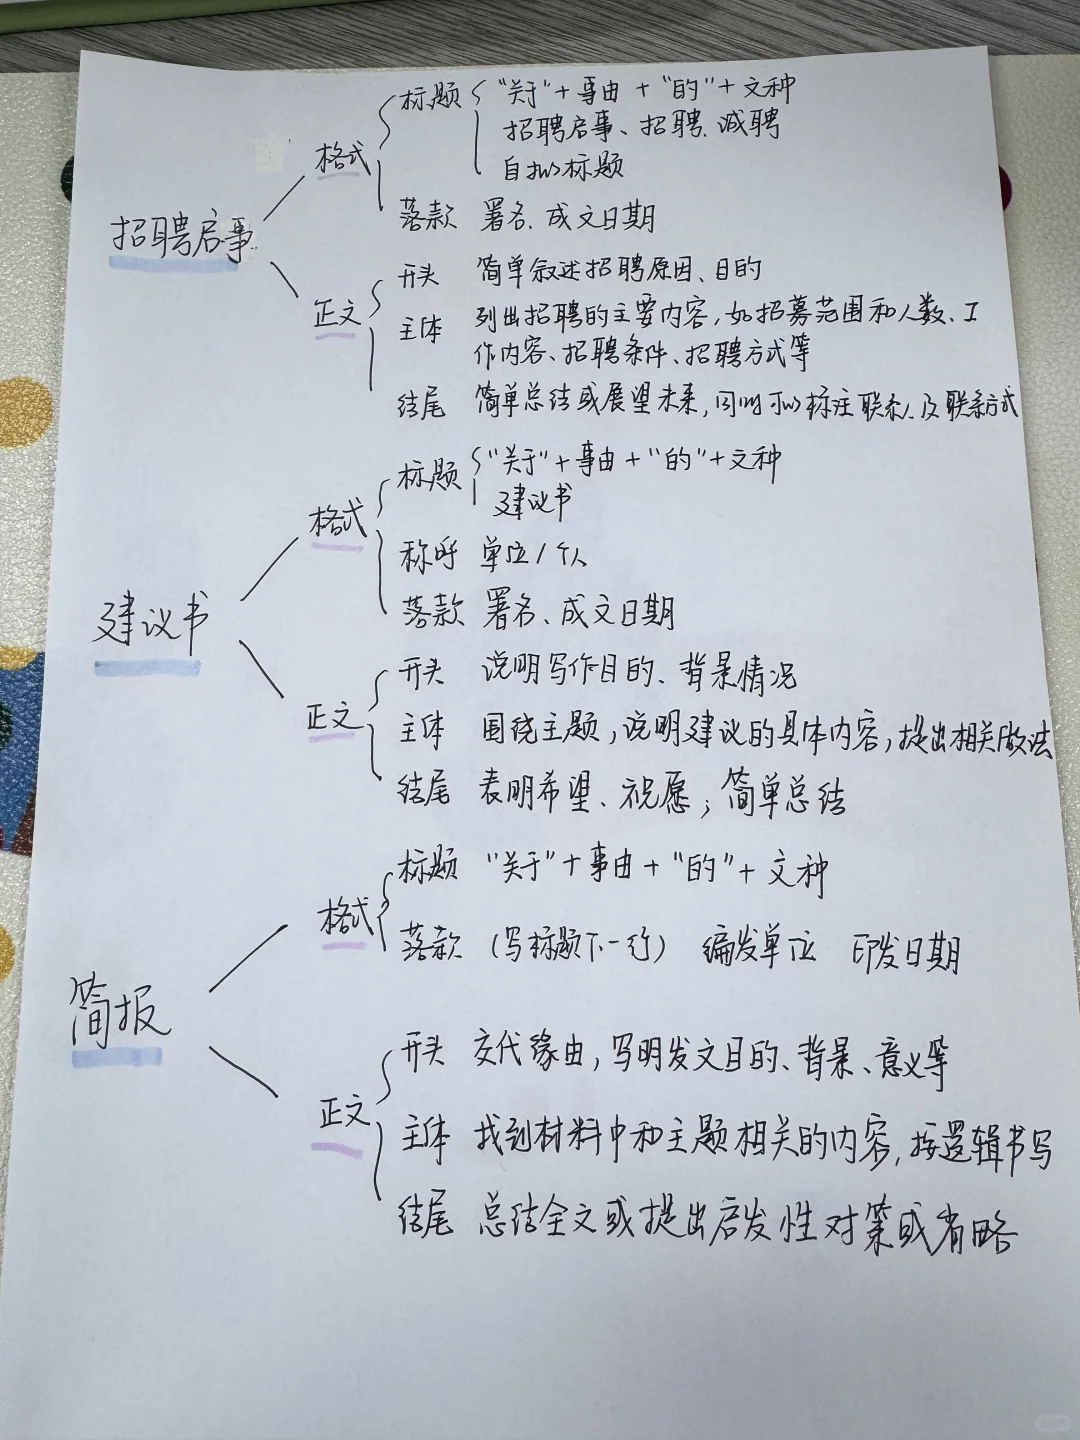 招聘启事
格式
标题 "关于"+事由+"的"+文种
招聘启事、招聘、诚聘
自拟标题
落款 署名、成文日期
正文
开头 简单叙述招聘原因、目的
主体 列出招聘的主要内容,如招募范围和人数、工
作内容、招聘条件、招聘方式等
结尾 简单总结或展望未来,同时可以标注联系人及联系方式
建议书
格式
标题 "关于"+事由+"的"+文种
建议书
称呼 单位/个人
落款 署名、成文日期
正文
开头 说明写作目的、背景情况
主体 围绕主题,说明建议的具体内容,提出相关做法
结尾 表明希望、祝愿;简单总结
简报
格式
标题 "关于"+事由+"的"+文种
落款 (写标题下一行) 编发单位 印发日期
正文
开头 交代缘由,写明发文目的、背景、意义等
主体 找到材料中和主题相关的内容,按逻辑书写
结尾 总结全文或提出启发性对策或省略